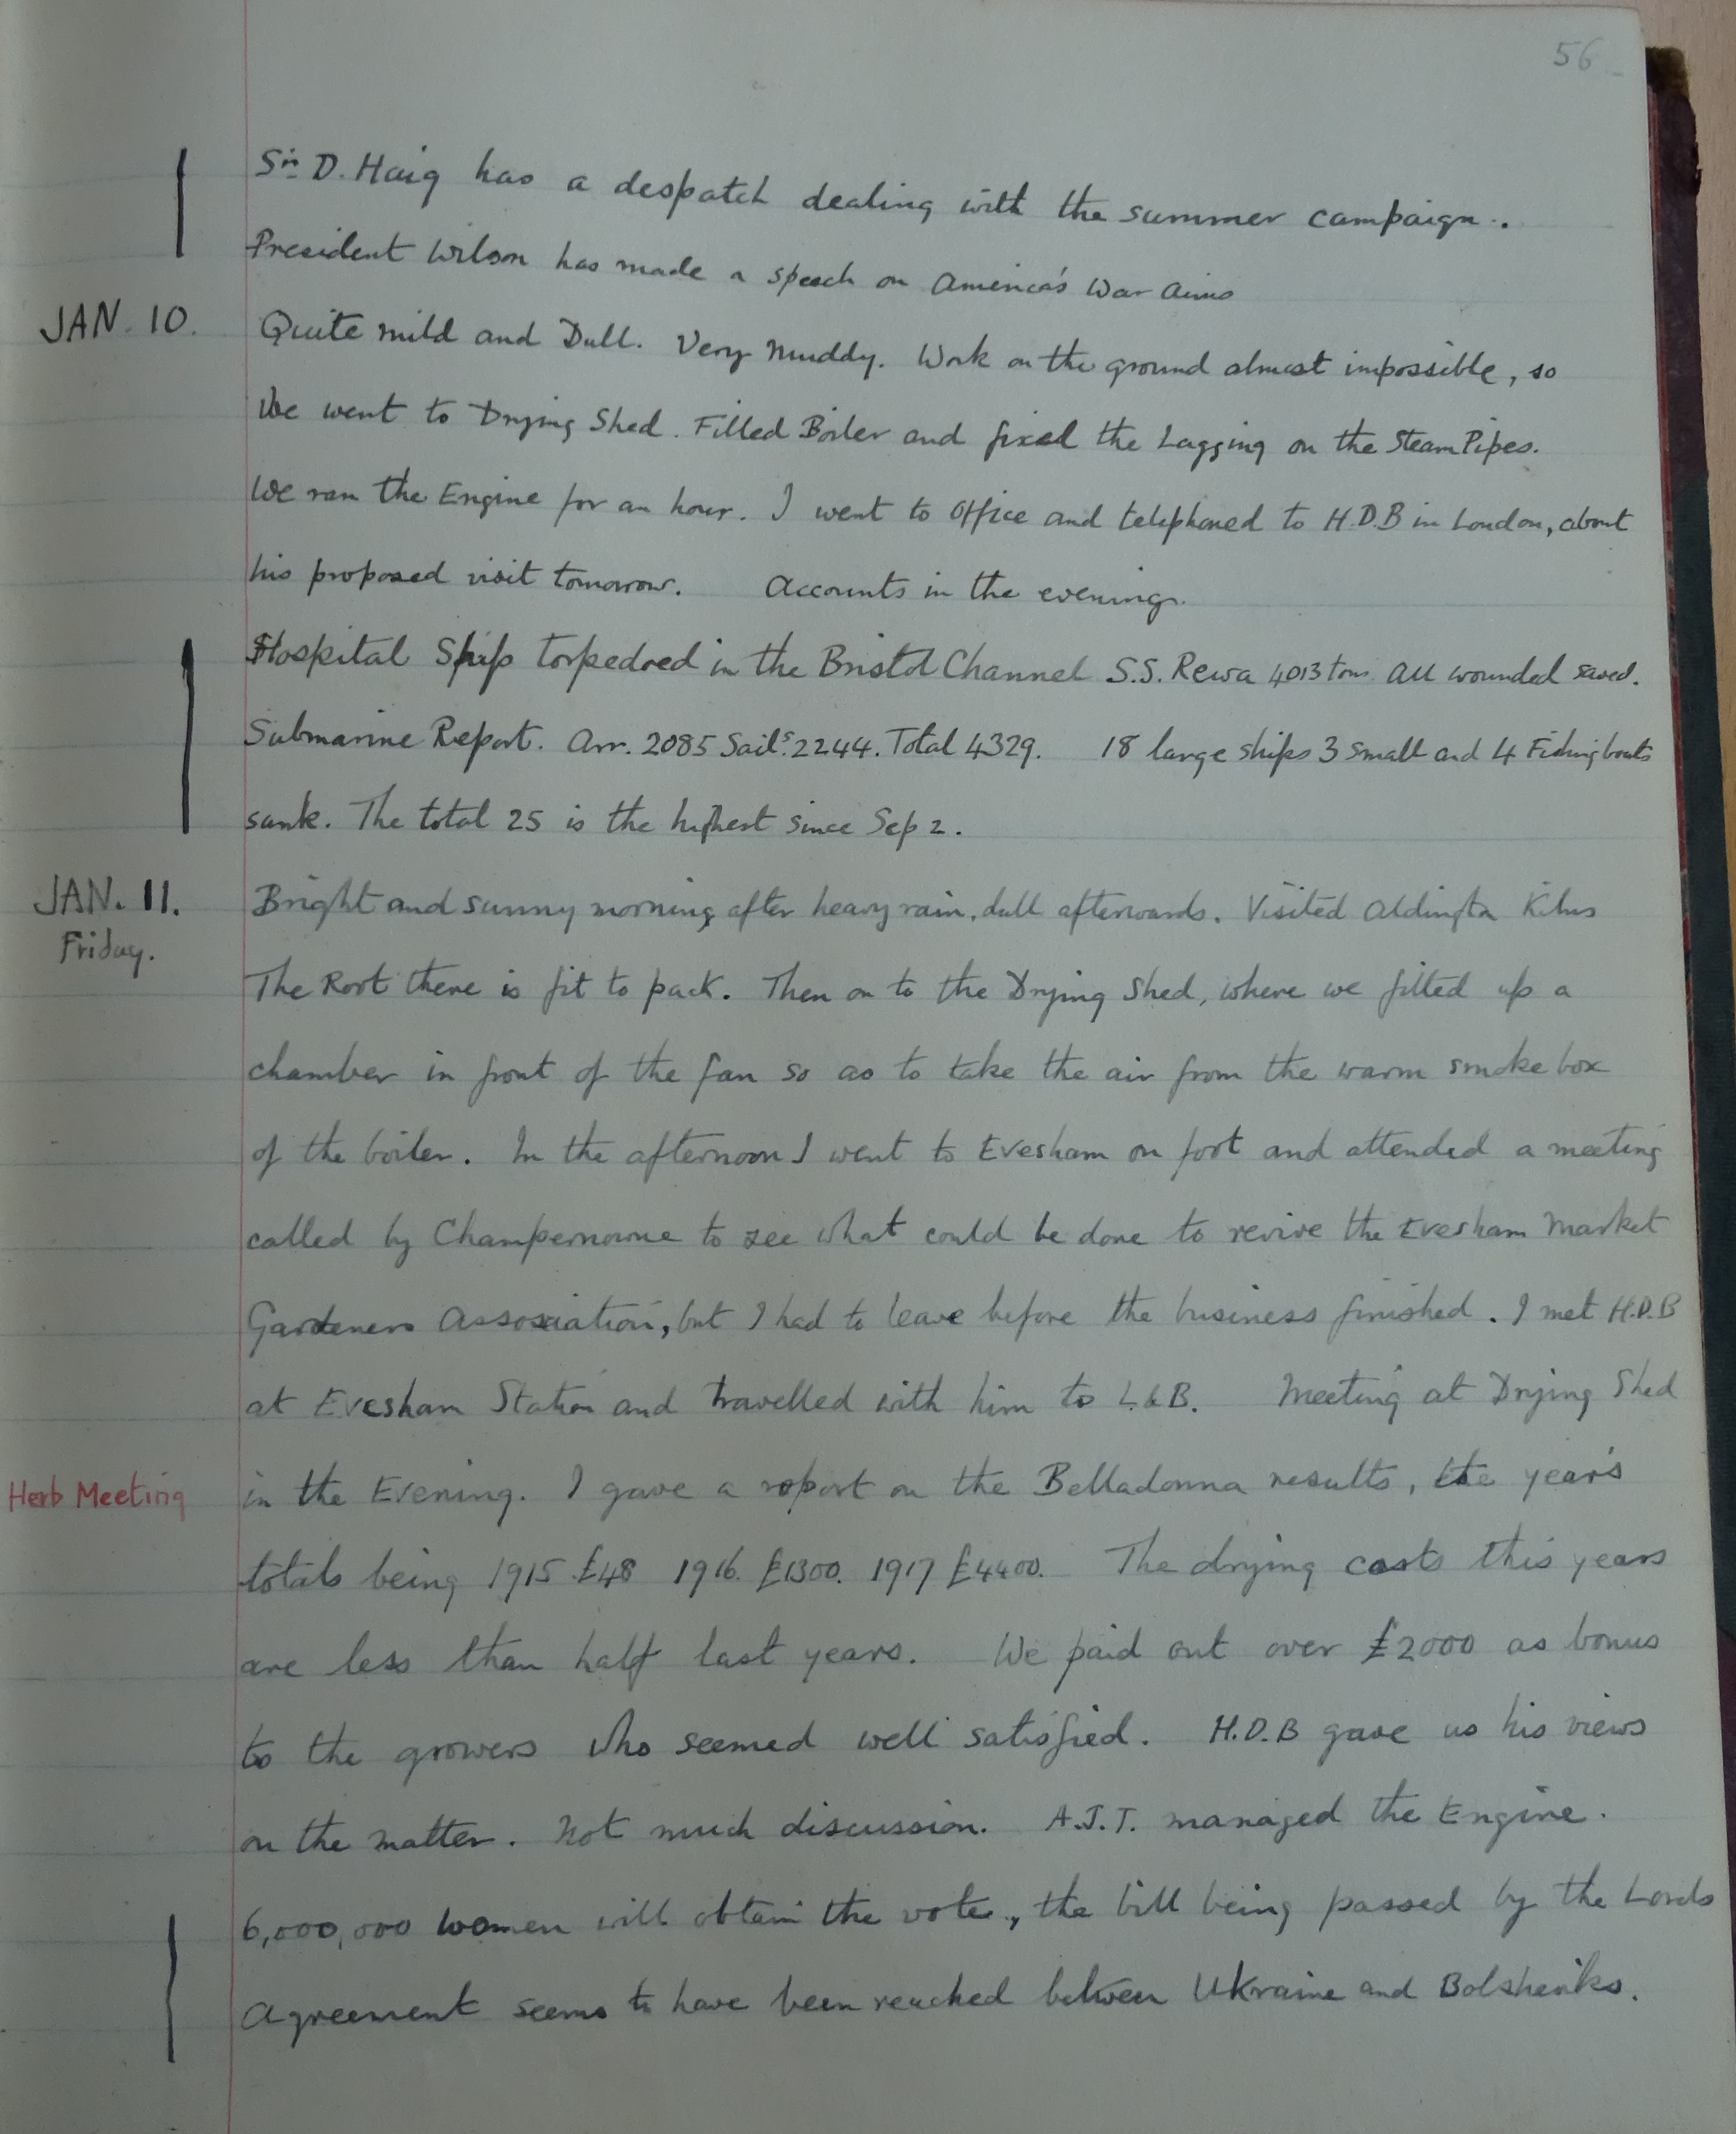 56
Sir D. Haig has a despatch dealing with the summer campaign.
President Wilson has made a speech on America's War Aims
JAN. 10. Quite mild and Dull. Very muddy. Work on the ground almost impossible, so
we went to Drying Shed. Filled Boiler and fixed the Lagging on the Steam Pipes.
We ran the Engine for an hour. I went to Office and telephoned to H.D.B in London, about
his proposed visit tomorrow. Accounts in the evening.
Hospital Ship torpedoed in the Bristol Channel S.S. Rewa 4013 tons. All wounded saved.
Submarine Report. Arr. 2085 Sails. 2244. Total 4329. 18 large ships 3 small and 4 Fishing boats
sunk. The total 25 is the highest since Sep 2.
JAN. 11. Bright and sunny morning after heavy rain, dull afterwards. Visited Aldington Kilns
Friday. The Root there is fit to pack. Then on to the Drying Shed, where we fitted up a
chamber in front of the fan so as to take the air from the warm smoke box
of the boiler. In the afternoon I went to Evesham on foot and attended a meeting
called by Champernowne to see what could be done to revive the Evesham Market
Gardeners Association, but I had to leave before the business finished. I met H.D.B
at Evesham Station and travelled with him to L&B. Meeting at Drying Shed
Herb Meeting in the Evening. I gave a report on the Belladonna results, the year's
totals being 1915 £48 1916. £1300. 1917 £4400. The drying costs this years
are less than half last years. We paid out over £2000 as bonus
to the growers who seemed well satisfied. H.D.B gave us his views
on the matter. Not much discussion. A.J.T. managed the Engine.
6,000,000 women will obtain the vote, the bill being passed by the Lords
Agreement seems to have been reached between Ukraine and Bolsheviks.